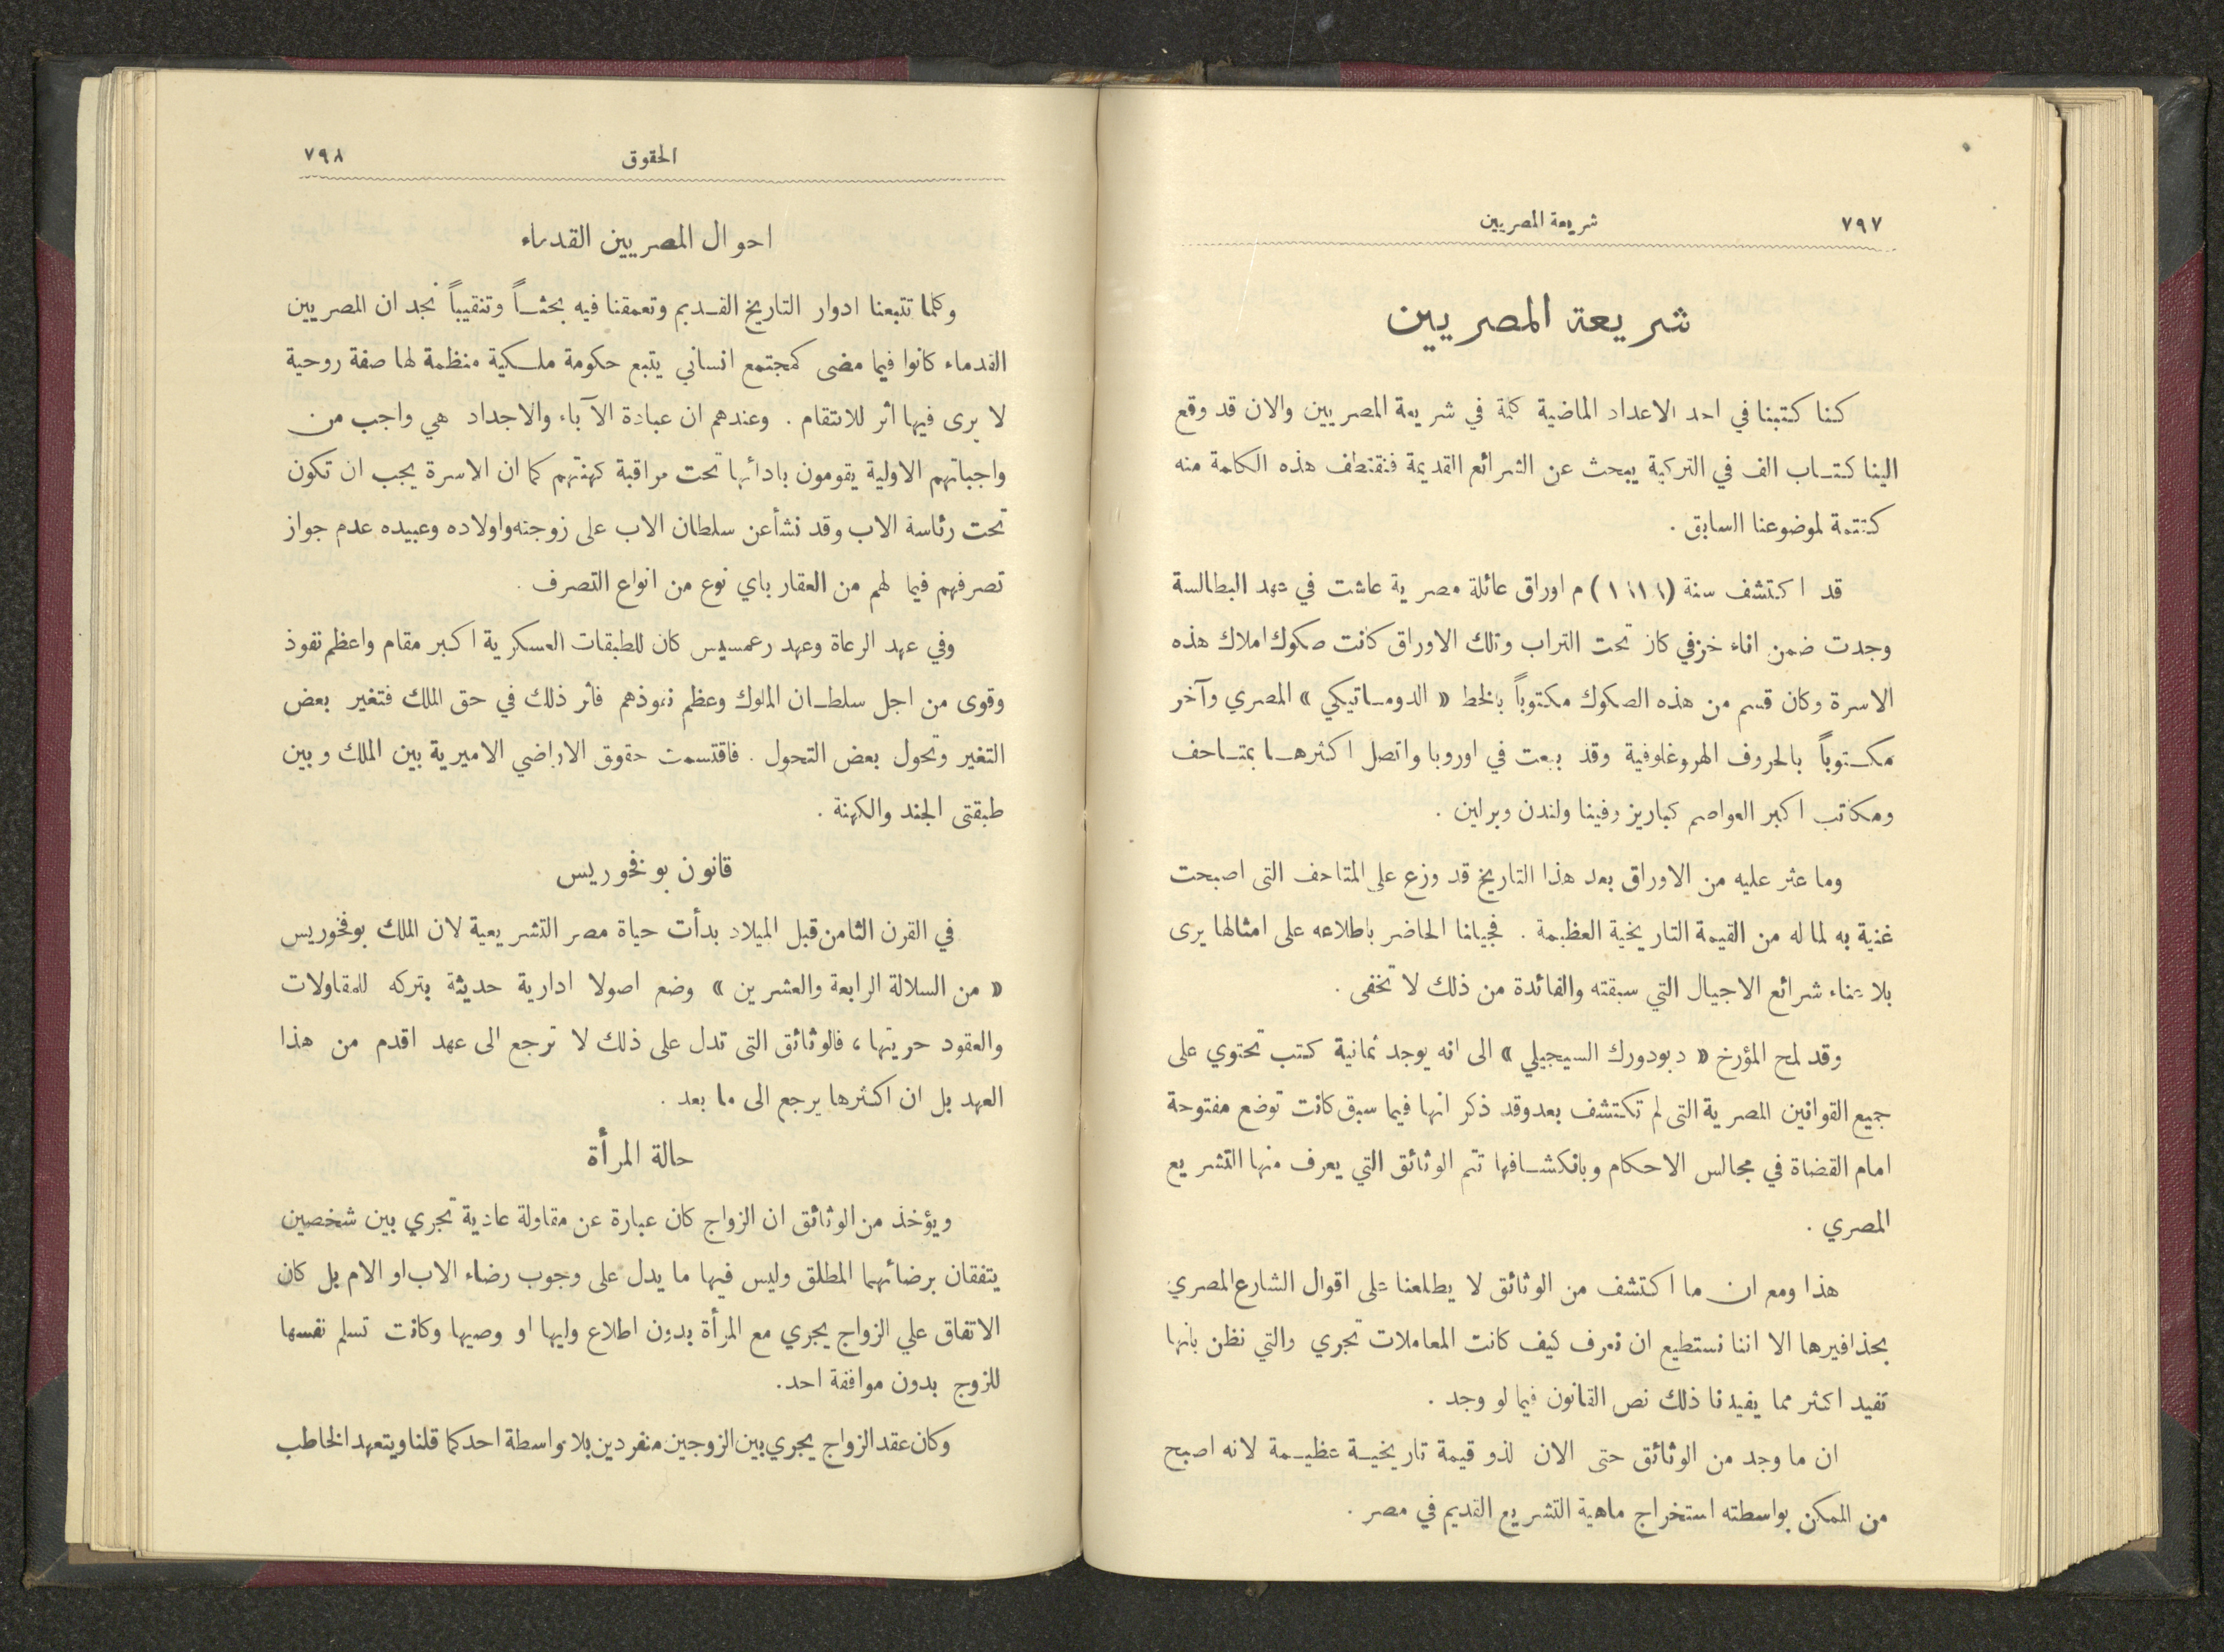 ٧٩٧ شريعة المصريين
شريعة المصريين
كنا كتبنا في احد الاعداد الماضية كلمة في شريعة المصريين والان قد وقع
الينا كتاب الف في التركية يبحث عن الشرائع القديمة فنقتطف هذه الكلمة منه
كتتمة لموضوعنا السابق .
قد اكتشف سنة م اوراق عائلة مصرية عاشت في عهد البطالسة
وجدت ضمن اناء خزفي كان تحت التراب وتلك الاوراق كانت صكوك املاك هذه
الاسرة وكان قسم من هذه الصكوك مكتوباً بالخط « الدوماتيكي » المصري وآخر
مكتوباً بالحروف الهروغلوفية وقد بيعت في اوروبا واتصل اكثرها بمتاحف
ومكاتب اكبر العواصم كباريز وفينا ولندن وبرلين .
وما عثر عليه من الاوراق بعد هذا التاريخ قد وزع على المتاحف التى اصبحت
غنية به لما له من القيمة التاريخية العظيمة . فجيلنا الحاضر باطلاعه على امثالها يرى
بلا عناء شرائع الاجيال التي سبقته والفائدة من ذلك لا تخفى .
وقد لمح المؤرخ « ديودورك السيجيلي » الى انه يوجد ثمانية كتب تحتوي على
جميع القوانين المصرية التى لم تكتشف بعد وقد ذكر انها فيما سبق كانت توضع مفتوحة
امام القضاة في مجالس الاحكام وبانكشافها تتم الوثائق التي يعرف منها التشريع
المصري .
هذا ومع ان ما اكتشف من الوثائق لا يطلعنا على اقوال الشارع المصري
بحذافيرها الا اننا نستطيع ان نعرف كيف كانت المعاملات تجري والتي نظن بانها
تفيد اكثر مما يفيدنا ذلك نص القانون فيما لو وجد .
ان ما وجد من الوثائق حتى الان لذو قيمة تاريخية عظيمة لانه اصبح
من الممكن بواسطته استخراج ماهية التشريع القديم في مصر .
الحقوق ٧٩٨
احوال المصريين القدماء
وكلما تتبعنا ادوار التاريخ القديم وتعمقنا فيه بحثاً وتنقيباً نجد ان المصريين
القدماء كانوا فيما مضى كمجتمع انساني يتبع حكومة ملكية منظمة لها صفة روحية
لا يرى فيها اثر للانتقام . وعندهم ان عبادة الآباء والاجداد هي واجب من
واجباتهم الاولية يقومون بادائها تحت مراقبة كهنتهم كما ان الاسرة يجب ان تكون
تحت رئاسة الاب وقد نشأ عن سلطان الاب على زوجته واولاده وعبيده عدم جواز
تصرفهم فيما لهم من العقار باي نوع من انواع التصرف .
وفي عهد الرعاة وعهد رعمسيس كان للطبقات العسكرية اكبر مقام واعظم نفوذ
وقوى من اجل سلطان الملوك وعظم نفوذهم فاثر ذلك في حق الملك فتغير بعض
التغير وتحول بعض التحول . فاقتسمت حقوق الاراضي الاميرية بين الملك وبين
طبقتى الجند والكهنة .
قانون بوخوريس
في القرن الثامن قبل الميلاد بدأت حياة مصر التشريعية لان الملك بوفخوريس
« من السلالة الرابعة والعشرين » وضع اصولا ادارية حديثة بتركه للمقاولات
والعقود حريتها ، فالوثائق التى تدل على ذلك لا ترجع الى عهد اقدم من هذا
العهد بل ان اكثرها يرجع الى ما بعد .
حالة المرأة
ويؤخذ من الوثائق ان الزواج كان عبارة عن مقاولة عادية تجري بين شخصين
يتفقان برضائهما المطلق وليس فيها ما يدل على وجوب رضاء الاب او الام بل كان
الاتفاق علي الزواج يجري مع المرأة بدون اطلاع وليها او وصيها وكانت تسلم نفسها
للزوج بدون موافقة احد .
وكان عقد الزواج يجري بين الزوجين منفردين بلا واسطة احد كما قلنا ويتعهد الخاطب